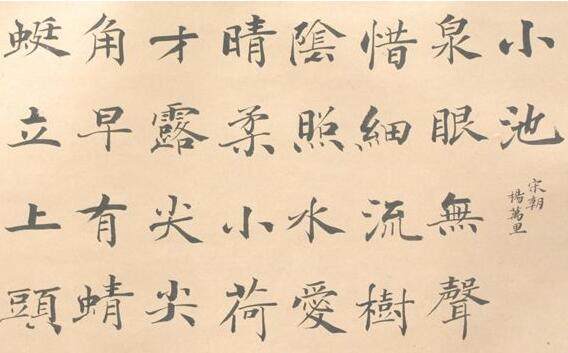 小池
宋朝
楊萬里
泉眼無聲
惜細流樹
陰照水愛
晴柔小荷
才露尖尖
角早有蜻
蜓立上頭